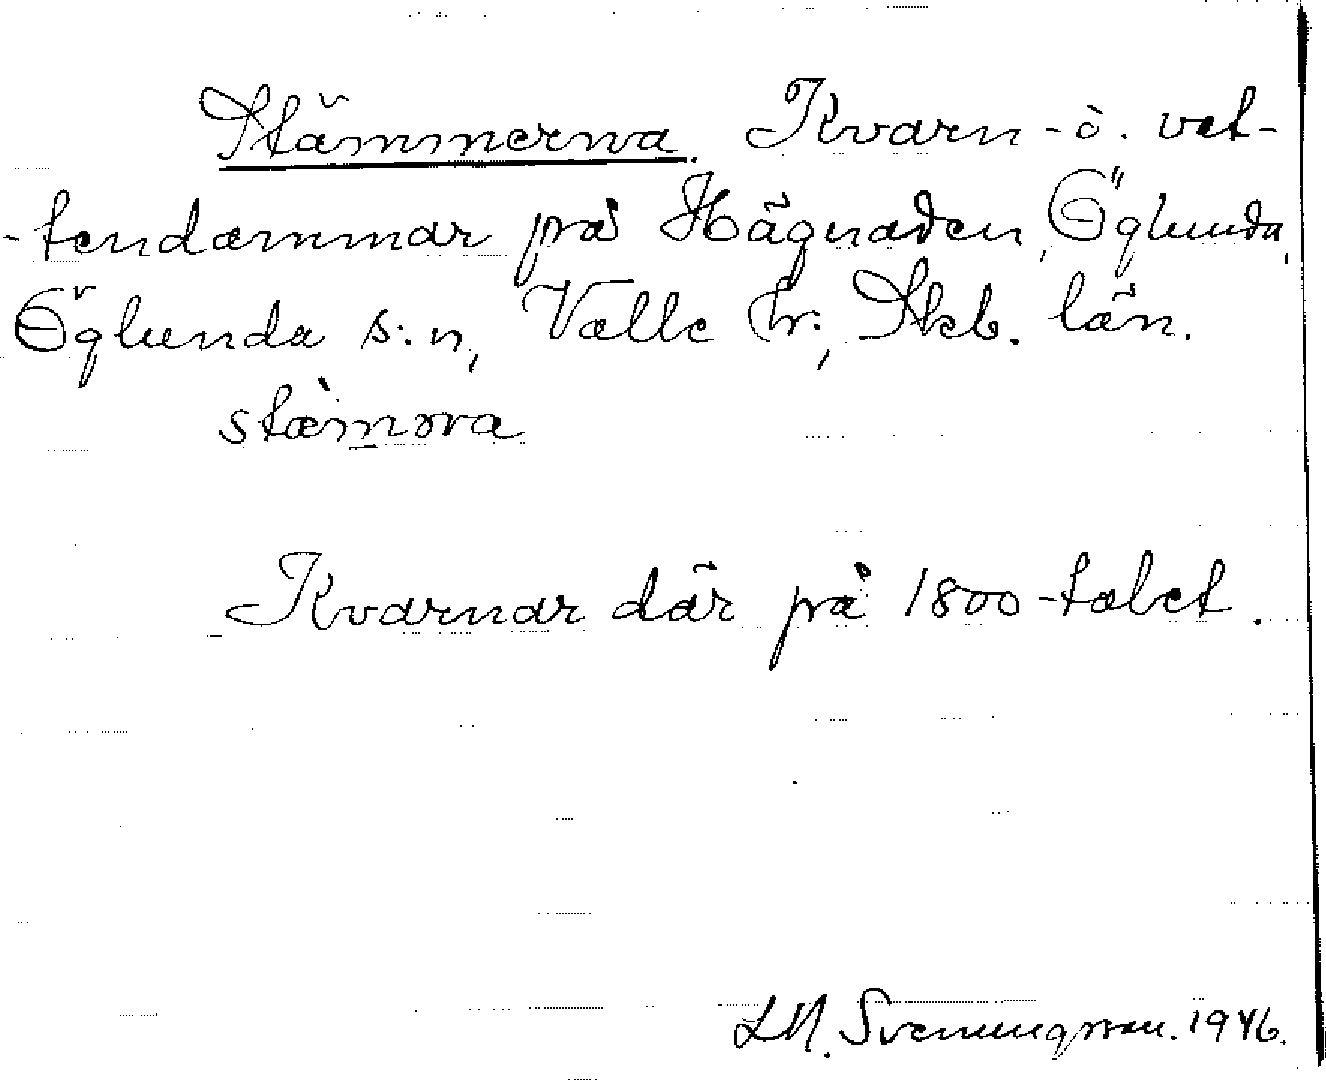 Stämmerna. Kvarn- o. vat-
-tendammar på Hägnaden, Öglunda,
Öglunda s:n, Valle hr:, Skb. län.
stämora
Kvarnar där på 1800-talet.
LM. Svenungsson. 1946.